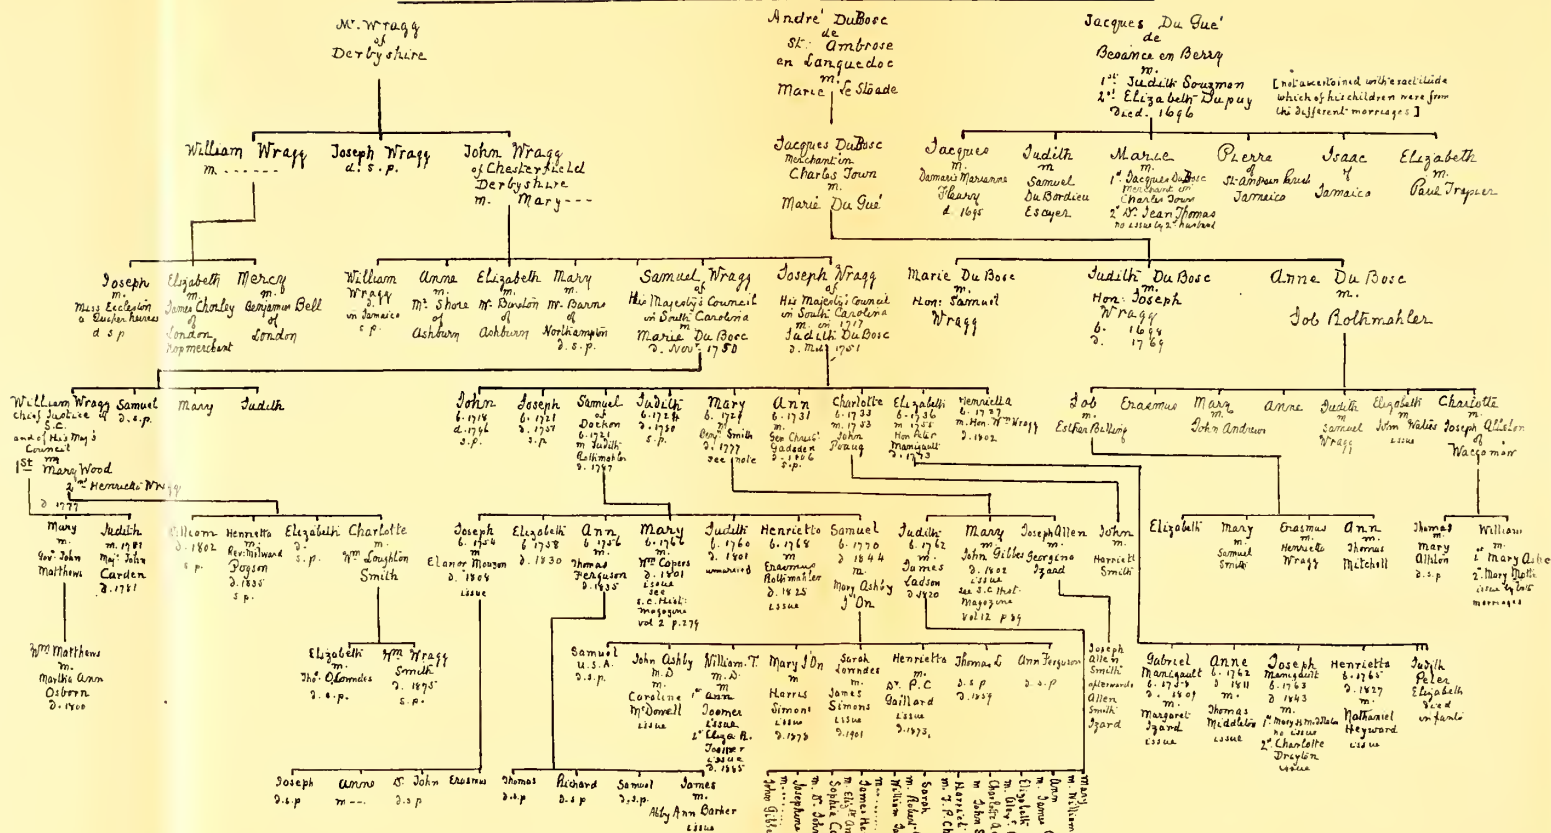 Mr. Wragg
of
Derbyshire
André DuBosc
de
St. Ambrose
en Languedoc
m.
Marie Le Stoade
Jacques Du Gué
de
Besance en Berry
m.
1st Judith Souzmon
2d Elizabeth Dupuy
Died. 1696
[not ascertained with exactitude
which of his children were from
the different marriages]
William Wragg
m. ------
Joseph Wragg
d. s. p.
John Wragg
of Chesterfield
Derbyshire
m. Mary ---
Jacques DuBosc
Merchant in
Charles Town
m.
Marie Du Gué
Jacques
m.
Damaris Marianne
Fleury
d. 1695
Judith
m
Samuel
Du Bordieu
Escuyer
Marie
m.
1st Jacques DuBosc
merchant in
Charles Town
2d Dr. Jean Thomas
no issue by 2d husband
Pierre
of
St. Andrew Parish
Jamaica
Isaac
of
Jamaica
Elizabeth
m.
Paul Trapier
Joseph
m.
Miss Eccleston
a Quaker heiress
d s p
Elizabeth
m.
James Chorley
of
London
Hop merchant
Mercy
m.
Benjamin Bell
of
London
William
Wragg
d.
in Jamaica
s p.
Anne
m.
Mr. Shore
of
Ashburn
Elizabeth
m.
Mr. Burston
of
Ashburn
Mary
m.
Mr. Barns
of
Northampton
d. s. p.
Samuel Wragg
of
His Majesty's Council
in South Carolina
m
Marie Du Bosc
d. Nov. 1750
Joseph Wragg
of
His Majesty's Council
in South Carolina
m. in 1717
Judith DuBosc
d. 1751
Marie Du Bosc
m.
Hon: Samuel
Wragg
Judith Du Bosc
m.
Hon: Joseph
Wragg
b. 1698
d. 1769
Anne Du Bosc
m.
Job Rothmahler
William Wragg
Chief Justice of
S.C.
and of His Maj's
Council
m
1st Mary Wood
2nd Henrietta Wragg
d 1777
Samuel
d. s. p.
Mary
Judith
John
b. 1718
d. 1796
s. p.
Joseph
b. 1721
d. 1751
s. p
Samuel
of
Dockon
b. 1721
m Judith
Rothmahler
d. 1787
Judith
b. 1724
d. 1750
s. p.
Mary
m
Benj. Smith
d. 1777
see note
Ann
b. 1731
m.
Gen Chris:
Gadsden
d. 1806
s. p.
Charlotte
b. 1733
m. 1753
John
Poaug
Elizabeth
b. 1736
m 1755
Hon Peter
Manigault
d. 1773
Henrietta
b. 1737
m. Hon. Wm Wragg
d. 1802
Job
m.
Esther Belling
Erasmus
Mary
m.
John Andrews
Anne
Judith
m
Samuel
Wragg
Elizabeth
m
John Waties
issue
Charlotte
m
Joseph Allston
of
Waccamaw
Mary
m.
Gov. John
Matthews
Judith
m. 1781
Maj. John
Carden
d. 1781
William
d. 1802
s p.
Henrietta
m.
Rev: Milward
Pogson
d. 1835
s p.
Elizabeth
d.
s. p.
Charlotte
m.
Wm Loughton
Smith
Joseph
b. 1754
m
Elanor Mouzon
d. 1804
issue
Elizabeth
b 1758
d. 1830
Ann
b. 1756
m.
Thomas
Ferguson
d. 1835
Mary
b. 1764
m
Wm Capers
d. 1801
issue
see
S.C. Hist:
Magazine
vol 2 p. 279
Judith
b. 1760
d. 1801
unmarried
Henrietta
b. 1768
m
Erasmus
Rothmahler
d. 1825
issue
Samuel
b. 1770
d 1844
m
Mary Ashby
I'On
Judith
b. 1762
m.
James
Ladson
d 1820
Mary
m.
John Gibbes
d. 1802
issue
see S.C. Hist:
Magazine
Vol 12 p 89
Joseph Allen
m.
Georgina
Izard
John
m
Harriett
Smith
Elizabeth
Mary
m
Samuel
Smith
Erasmus
m
Henrietta
Wragg
Ann
m
Thomas
Mitchell
Thomas
m
Mary
Allston
d. s. p
William
m.
1st Mary Ashe
2d Mary Motte
issue by both
marriages
Wm Matthews
m.
Martha Ann
Osborn
d. 1800
Elizabeth
m.
Tho. O. Lowndes
d. s. p.
Wm Wragg
Smith
d. 1875
s. p.
Samuel
U.S.A.
d. s. p.
John Ashby
M.D
m
Caroline
McDowell
issue
William. T.
m. D.
m
1st Ann
Toomer
issue
2d Eliza R.
Toomer
issue
d. 1885
Mary I'On
m
Harris
Simons
issue
d. 1878
Sarah
Lowndes
m
James
Simons
issue
d. 1901
Henrietta
m
Dr. P.C
Gaillard
issue
d. 1873
Thomas L
d. s p
d. 1859
Ann Ferguson
d. s. p
Joseph
Allen
Smith
afterwards
Allen
Smith
Izard
Gabriel
Manigault
b. 1758
d. 1809
m.
Margaret
Izard
issue
Anne
b. 1762
d 1811
m.
Thomas
Middleton
issue
Joseph
Manigault
b. 1763
d 1843
m.
1st Mary H. Middleton
no issue
2d Charlotte
Drayton
issue
Henrietta
b. 1765
d. 1827
m.
Nathaniel
Heyward
issue
Judith
Peter
Elizabeth
died
infants
Joseph
d. s. p
Anne
m ---
Dr. John
d. s p
Erasmus
Thomas
d. s. p
Richard
d. s p
Samuel
d. s. p.
James
m.
Abby Ann Barker
issue
John Gibbe
m.
Josephine
m. Dr. John
Sophia
m. Eliz
James
m.
William
m. Robert
Sarah
m. J. P. Ch
Harriet
m John S
Charlotte
m.
Elizabeth
m. James
Ann
m. William
Mary